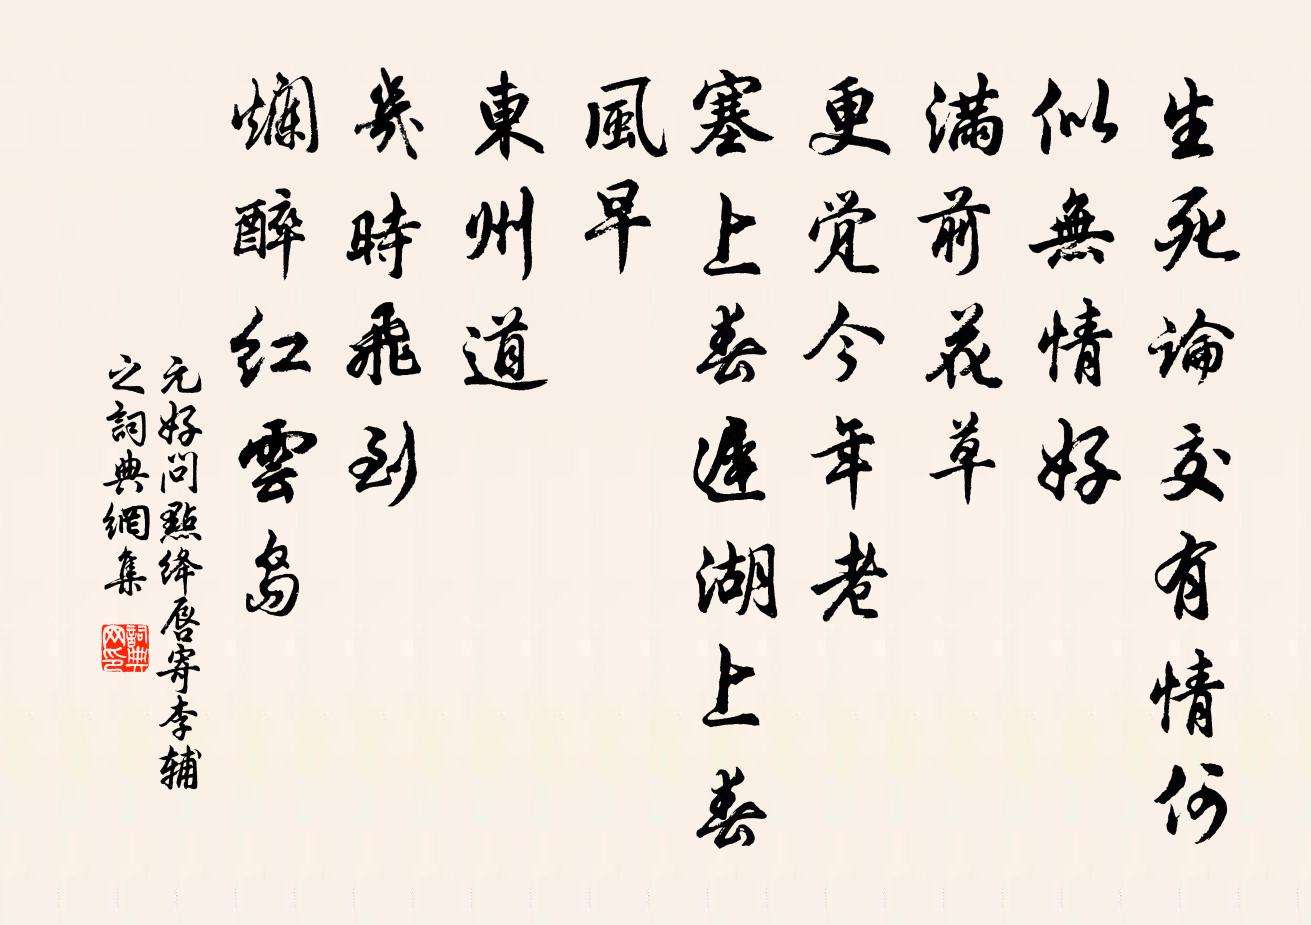 生死論交有情何
似無情好
滿前花草
更觉今年老
塞上春遲湖上春
風早
東州道
幾時飛到
爛醉紅雲島
元好问點絳唇寄李辅
之詞典網集
詞典
网印